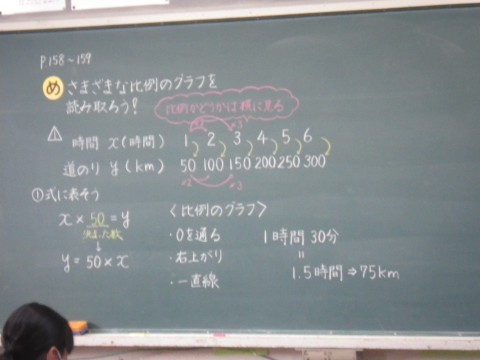 P158～159
め さまざまな比例のグラフを
読み取ろう!
比例かどうかは横に見る
×2 ×3
⚠ 時間 x(時間) 1 2 3 4 5 6
道のり y(km) 50 100 150 200 250 300
×2 ×3
①式に表そう
x × 50 = y
決まった数
↓
y = 50 × x
〈比例のグラフ〉
・0を通る
・右上がり
・一直線
1時間30分
=
1.5時間⇒75km